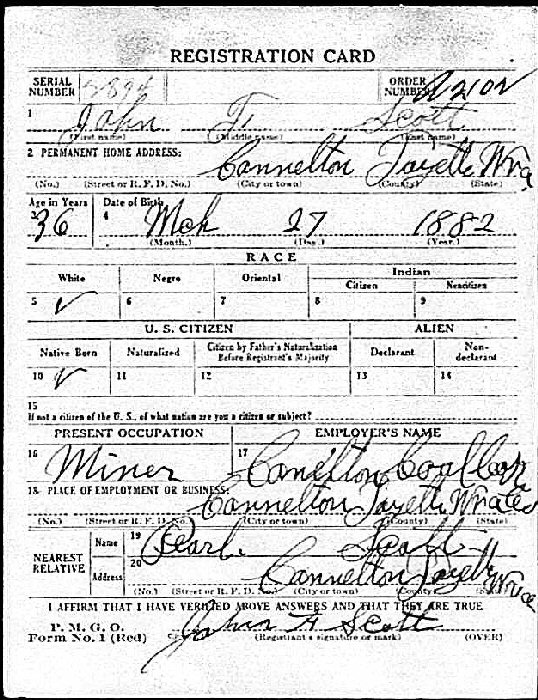 REGISTRATION CARD
SERIAL NUMBER
ORDER NUMBER A2102
1 John F. Scott
(First name) (Middle name) (Last name)
2 PERMANENT HOME ADDRESS:
Cannelton Fayette Wva
(No.) (Street or R. F. D. No.) (City or town) (County) (State)
Age in Years Date of Birth
3 36 4 Mch 27 1882
(Month.) (Day.) (Year.)
RACE
White Negro Oriental Indian
Citizen Noncitizen
5 ✓ 6 7 8 9
U. S. CITIZEN ALIEN
Native Born Naturalized Citizen by Father's Naturalization Before Registrant's Majority Declarant Non-declarant
10 ✓ 11 12 13 14
15
If not a citizen of the U. S., of what nation are you a citizen or subject?
PRESENT OCCUPATION EMPLOYER'S NAME
16 Miner 17 Canelton Coal
18 PLACE OF EMPLOYMENT OR BUSINESS:
Cannelton Fayette
(No.) (Street or R. F. D. No.) (City or town) (County) (State)
NEAREST RELATIVE
Name 19 Pearl Scott
Address 20 Cannelton Fayett Wva
(No.) (Street or R. F. D. No.) (City or town) (County) (State)
I AFFIRM THAT I HAVE VERIFIED ABOVE ANSWERS AND THAT THEY ARE TRUE
P. M. G. O.
Form No. 1 (Red) John F Scott
(Registrant's signature or mark) (OVER)